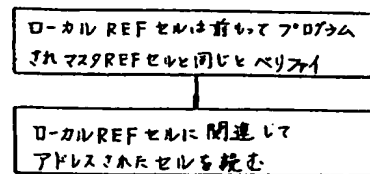 ローカル REF セルは前もって プログラム
され マスタREF セルと同じと ベリファイ
ローカルREF セルに 関連 して
アドレスされたセルを 読む